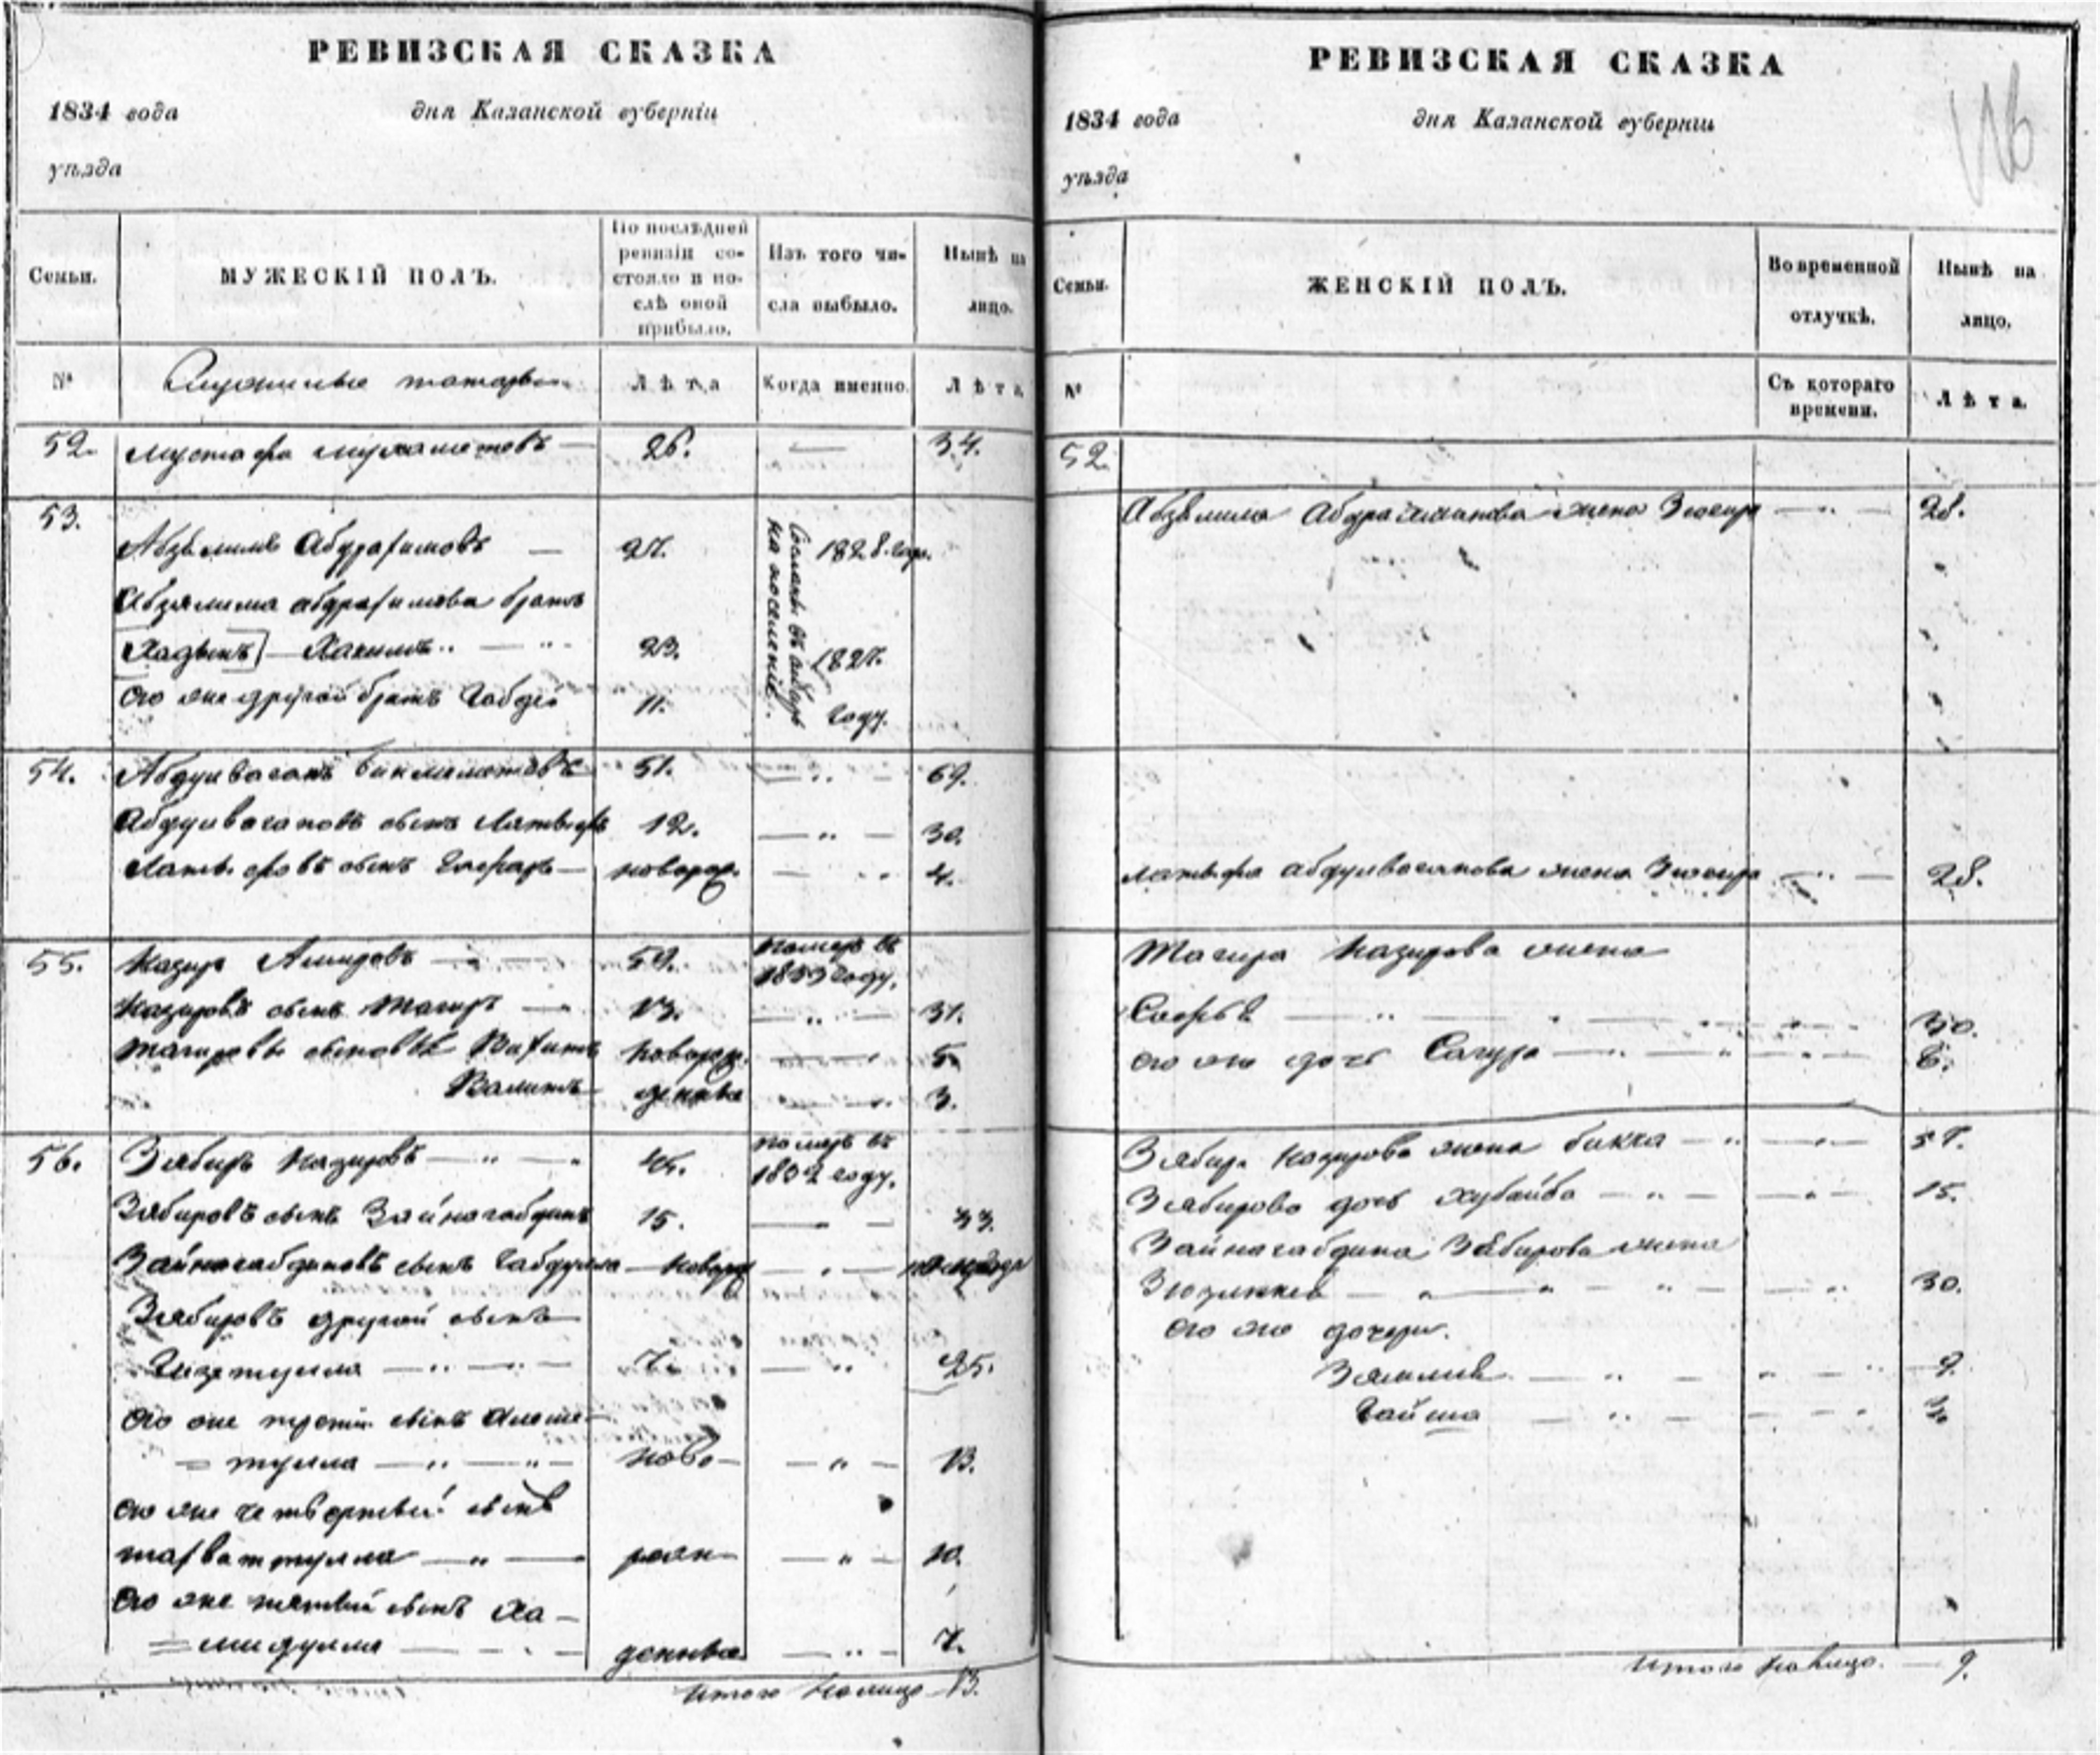 РЕВИЗСКАЯ СКАЗКА
1834 года дня Казанской губернiи
уѣзда
Семьи.
МУЖЕСКIЙ ПОЛЪ.
По послѣдней ревизiи состояло и послѣ оной прибыло.
Изъ того числа выбыло.
Нынѣ на лицо.
№
Служилые татары
Лѣта
Когда именно.
Лѣта.
52. Мустафа Мухаметовъ — 26. — 34.
53.
Абзялилъ Абдрахимовъ — 27. 1828. года.
Абзялила абдрахимова братъ
Хадыкъ Хакимъ 23. 1827.
Его же другой братъ Габдей 11. году.
Сосланы въ сибирь на поселенiе.
54. Абдулвагапъ Бикмяметовъ 51. — 69.
Абдулвагаповъ сынъ Лятыфъ 12. — 30.
Латыфовъ сынъ — новорож. — 4.
55. Назиръ Амировъ — 59. померъ въ 1833 году.
Назировъ сынъ Тагиръ — 13. — 31.
Тагировы сыновья Вахитъ новорож. — 5.
Валитъ денные — 3.
56. Зябиръ Назировъ — 45. померъ въ 1832 году.
Зябировъ сынъ Зайнагабдинъ 15. — 33.
Зайнагабдиновъ сынъ Габдулла — новорож —
Зябировъ другой сынъ
7. — 25.
Его же третiй сынъ
= тулла — ново — 13.
Его же четвертый сынъ
рож — 10.
Его же пятый сынъ Ха-
= мидулла — денные — 7.
Итого налицо — 13.
РЕВИЗСКАЯ СКАЗКА
1834 года дня Казанской губернiи
уѣзда
116
Семьи.
ЖЕНСКIЙ ПОЛЪ.
Во временной отлучкѣ.
Нынѣ на лицо.
№
Съ котораго времени.
Лѣта.
52.
Абзялила Абдрахманова жена Зюгира — 28.
Латыфа абдулвагапова жена Зюгира — 28.
Тагира Назирова жена
30.
его же дочь Сагура — 6.
Зябира Назирова жена Бикка — 57.
Зябирова дочь Хубайба — 15.
Зайнагабдина Зябирова жена
30.
Его же дочери.
Зямиля — 9.
Гайша — 3.
Итого налицо. — 9.